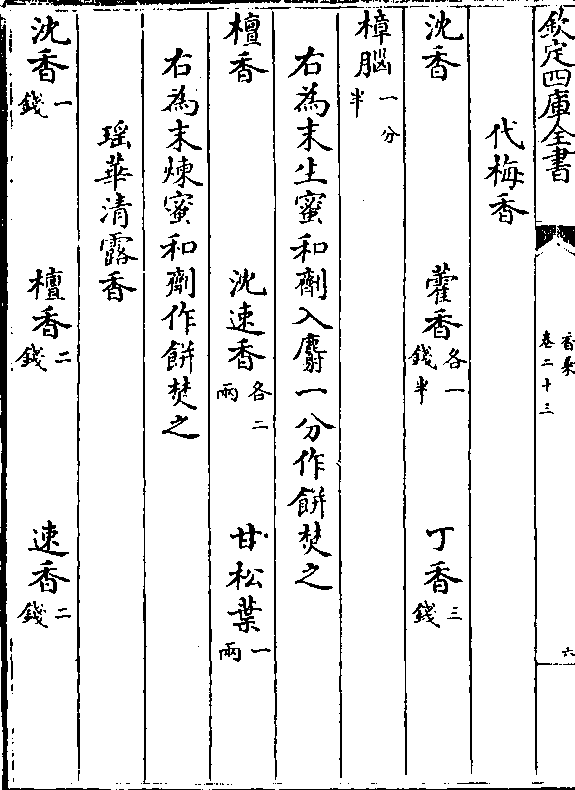 欽定四庫全書
香乘
卷二十三
六
代梅香
沈香 藿香各一錢半 丁香三錢
樟腦一分半
右為末生蜜和劑入麝一分作餅焚之
檀香 沈速香各二兩 甘松葉一兩
右為末煉蜜和劑作餅焚之
瑶華清露香
沈香一錢 檀香二錢 速香二錢